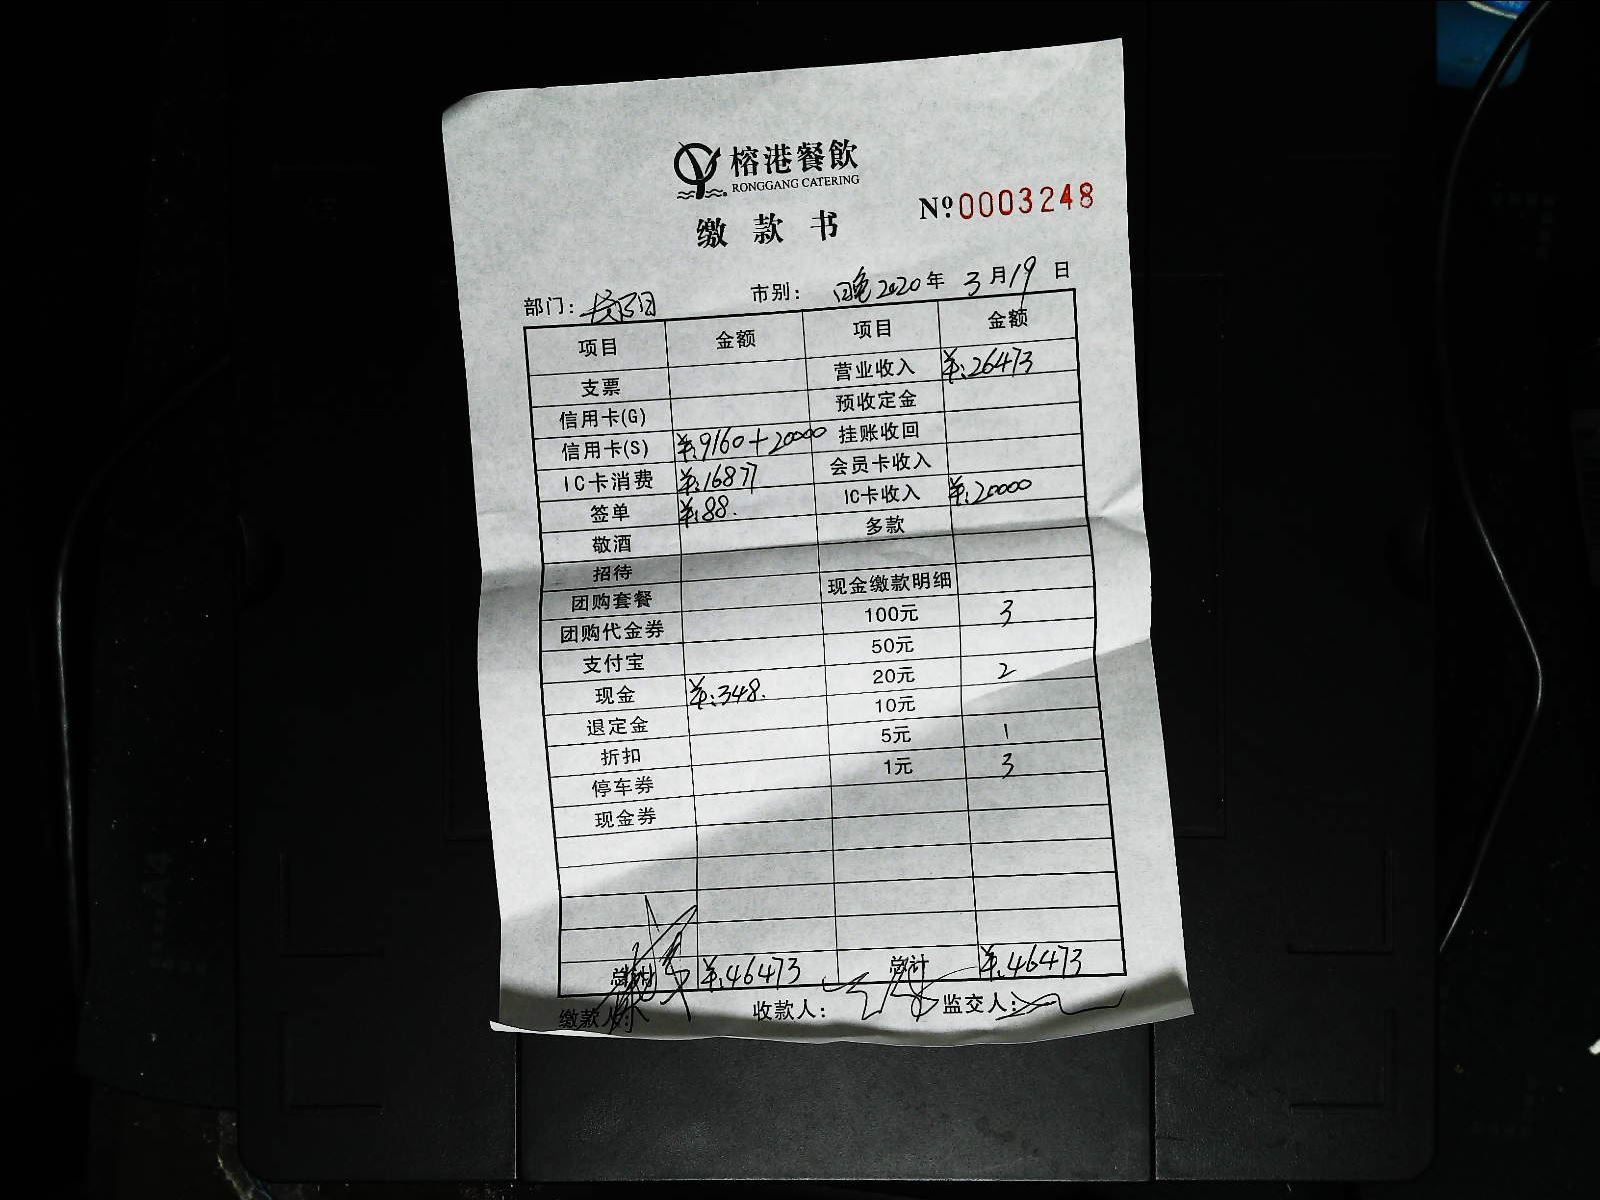 榕港餐飲
RONGGANG CATERING
缴款书
Nº0003248
部门: 市别: 晚 2020年 3月19日
项目 金额 项目 金额
支票 营业收入 ¥:26473
信用卡(G) 预收定金
信用卡(S) ¥:9160+20000 挂账收回
IC卡消费 ¥:16877 会员卡收入
签单 ¥:88. IC卡收入 ¥:20000
敬酒 多款
招待
团购套餐 现金缴款明细
团购代金券 100元 3
支付宝 50元
现金 ¥:348. 20元 2
退定金 10元
折扣 5元 1
停车券 1元 3
现金券
总计 ¥:46473 总计 ¥:46473
缴款人: 收款人: 监交人: